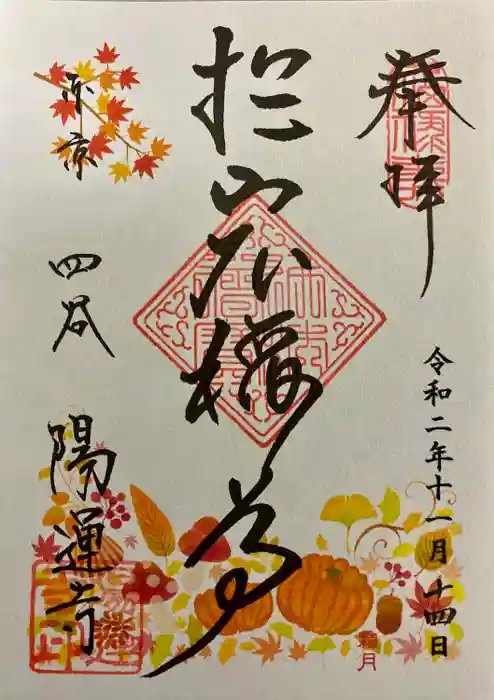 奉拝
扵岩稲荷
東京
四谷
陽運寺
令和二年十一月十四日
霜月